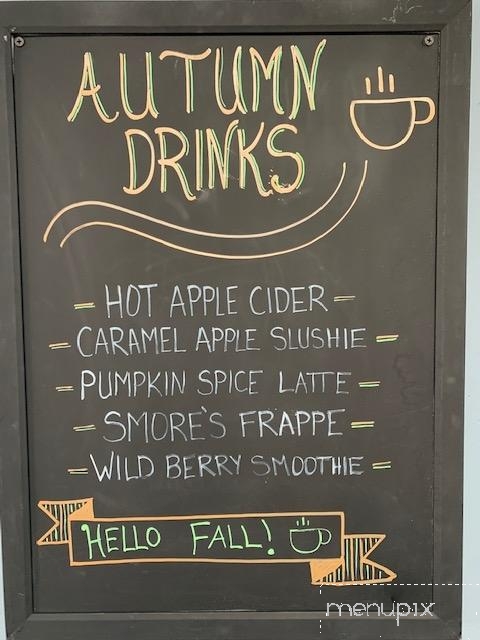 AUTUMN
DRINKS
HOT APPLE CIDER
CARAMEL APPLE SLUSHIE
PUMPKIN SPICE LATTE
SMORE'S FRAPPE
WILD BERRY SMOOTHIE
HELLO FALL!
menupix